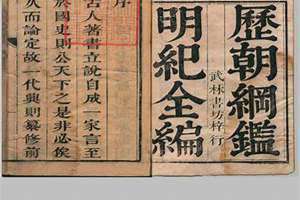 歷朝綱鑑
明紀全編
武林書坊梓行
序
古人著書立說自成一家言至
於國史則公天下之是非必俟
久而論定故一代興則纂修前